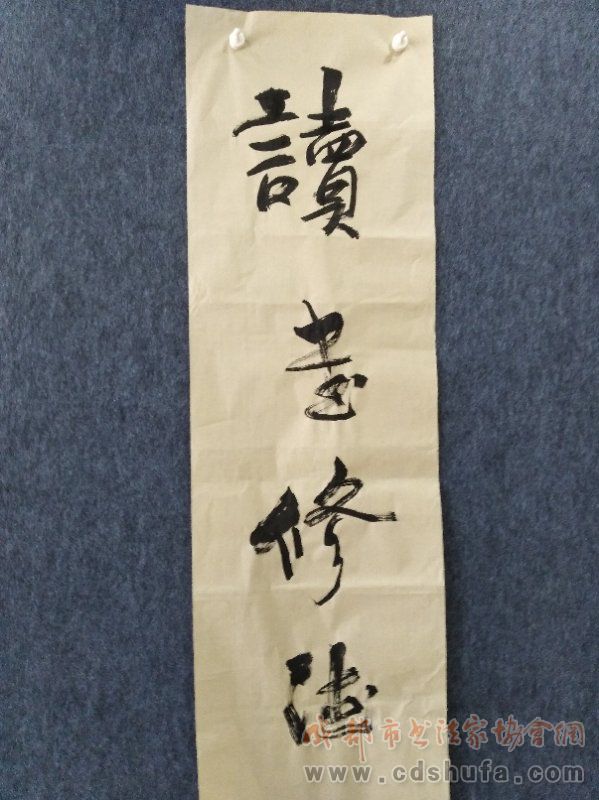 讀書修德
成都市书法家協會網
www.cdshufa.com